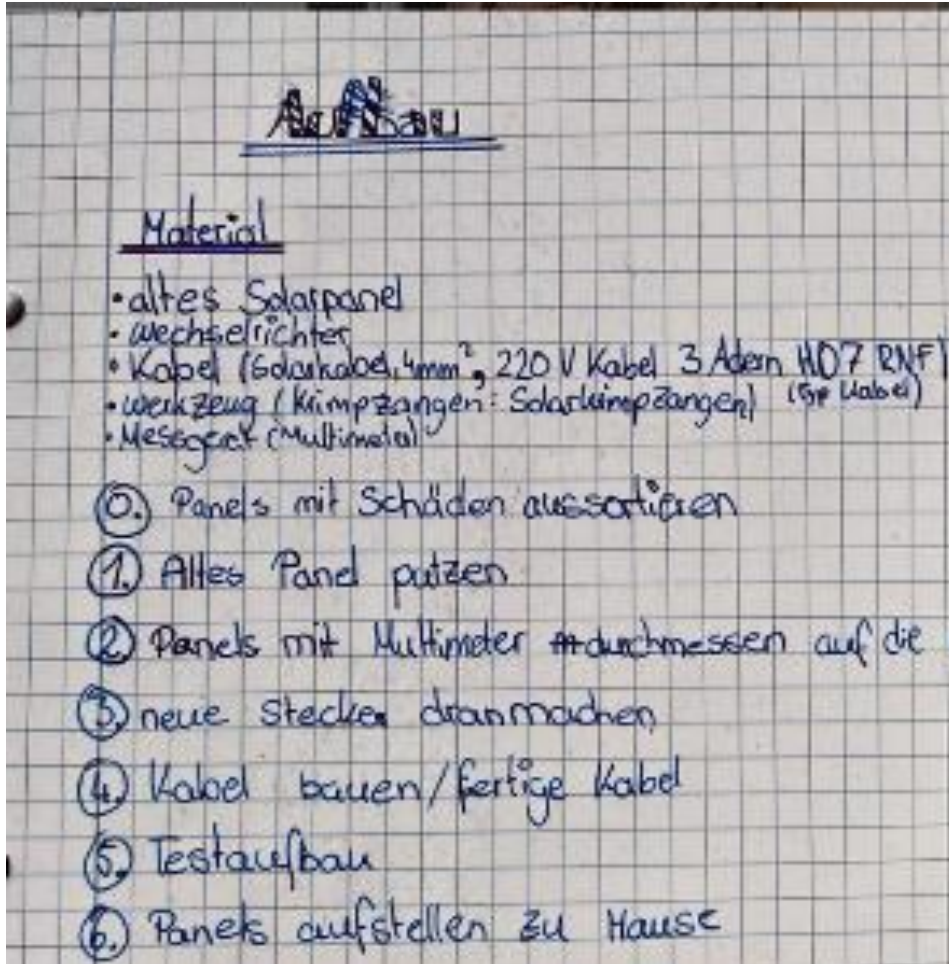 Aufbau
Material
• altes Solarpanel
• Wechselrichter
• Kabel (Solarkabel, 4mm², 220 V Kabel 3 Adern H07 RNF)
(Typ Kabel)
• Werkzeug (Krimpzangen: Solarkrimpzangen)
• Messgerät (Multimeter)
0. Panels mit Schäden aussortieren
1. Altes Panel putzen
2. Panels mit Multimeter durchmessen auf die
3. neue Stecker dranmachen
4. Kabel bauen/fertige Kabel
5. Testaufbau
6. Panels aufstellen zu Hause